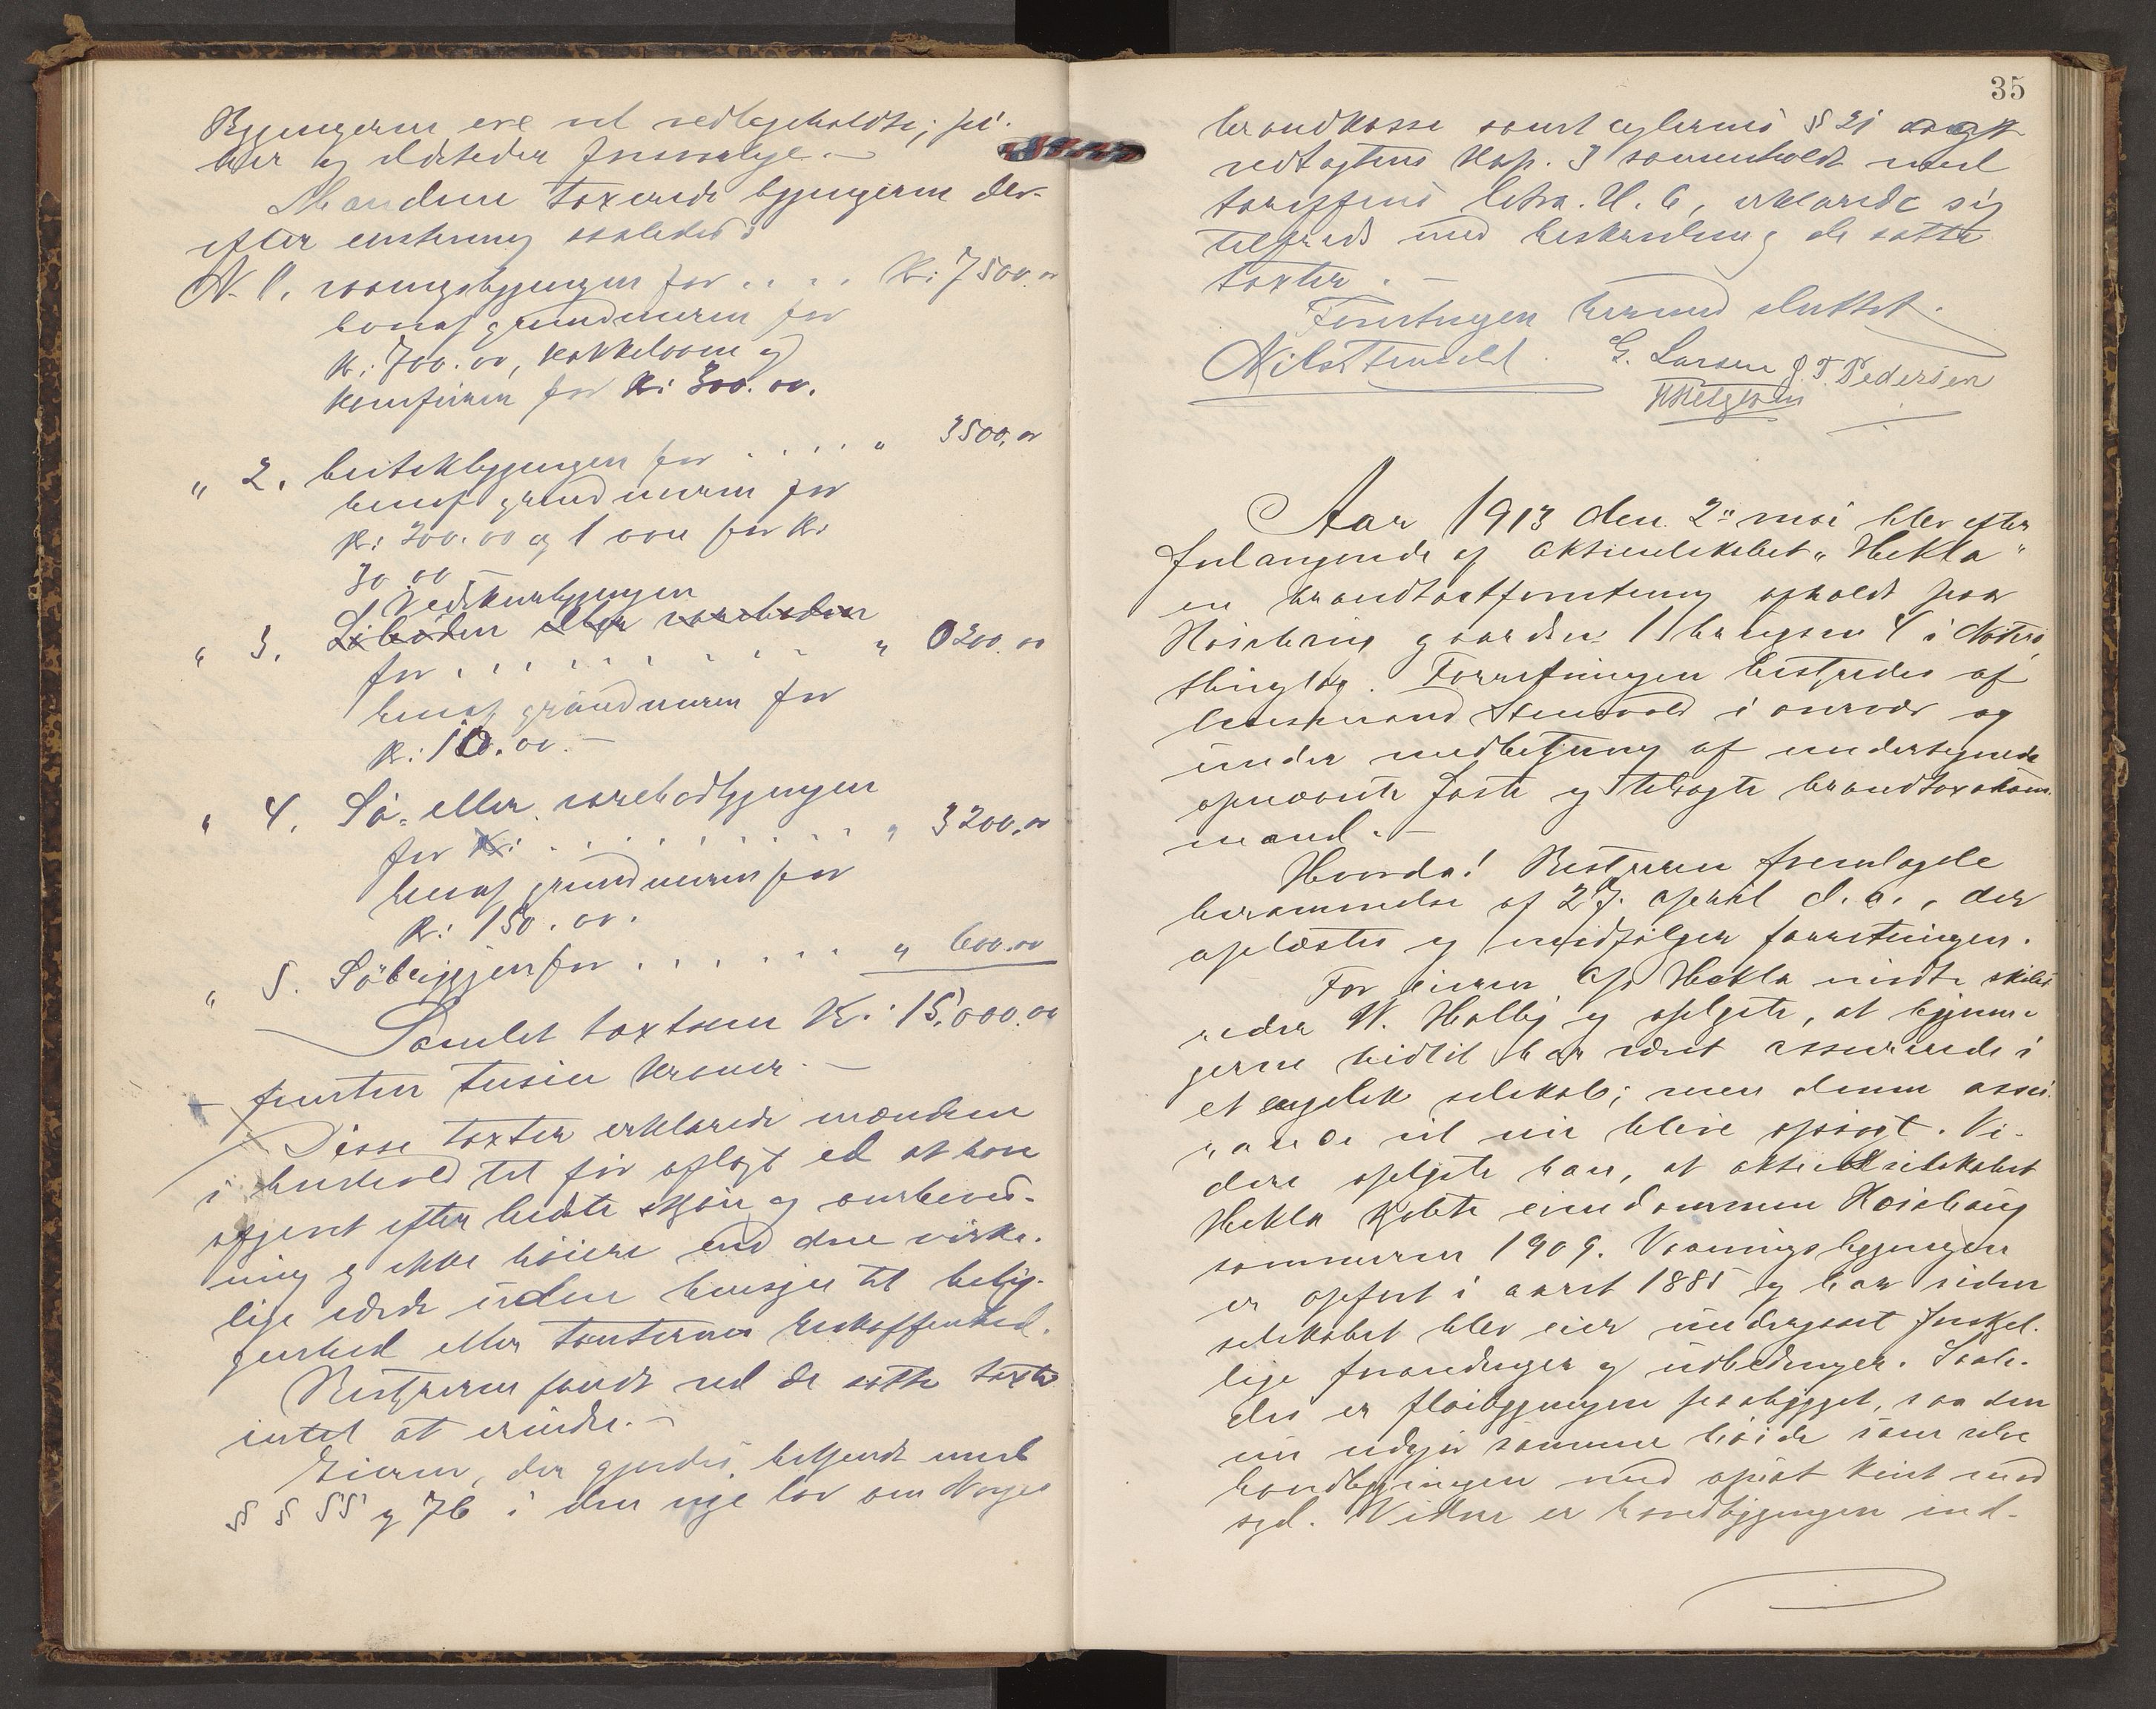 Bygningerne ere vel vedligeholdte; pi-
ber og ildsteder forsvarlige. –
Mændene taxerede bygningerne der-
efter enstemmig saaledes:
N. 1. vaaningsbygningen for . . . . Kr: 7500.00
heraf grundmuren for
Kr: 700.00, kakkelovne og
komfuren for Kr: 300.00.
" 2. bustekbygningen for . . . . . " 3500.00
heraf grundmuren for
Kr: 200.00 og 1 ovn for Kr
30 00
Vedskurbygningen
" 3. Söboden eller vareboden
for . . . . . . . . . " 0200.00
heraf grundmuren for
Kr: 10.00. –
" 4. Sö- eller varebodbygningen
for Kr: . . . . . . . . " 3200.00
heraf grundmuren for
Kr: 150.00.
" 5. Söbryggen for . . . . . . " 600.00
Samlet taxtsum Kr: 15,000.00
– femten tusen kroner. –
Disse taxter erklærede mændene
i henhold til för aflagt ed at have
afgivet efter bedste skjön og overbevis-
ning og ikke höiere end den virke-
lige værdi uden hensyn til belig-
genhed eller tomternes beskaffenhed.
Bestyreren fandt ved de satte taxter
intet at erindre. –
Eieren, der gjordes bekjendt med
§ § 55 og 76 i den nye lov om Norges
35
brandkasse samt cglernes § 21 og
vedtægtens Kap. 3 sammenholdt med
tariffens litra. H. 6, erklærede sig
tilfreds med beskrivelsen og de satte
taxter. –
Forretningen hermed sluttet.
Nils Stensvold. G. Larsen J. T. Pedersen
H Helgesen
Aar 1913 den 2" mai blev efter
forlangende af aktieselskabet "Hekla"
en brandtaxtforretning afholdt paa
Haisberg gaardsn. 1 bruksn 4 i Nöterö
thinglag. Forretningen bestyredes af
lensmand Stensvold i overvær og
under medbetjening af undertegnede
opnævnte faste og tilvagte brandtaxations-
mænd. –
Hvorda! Bestyreren fremlagde
berammelse af 27. april d. a., der
oplæstes og medfölger forretningen.
For eieren A/S Hekla mödte skibs-
reder W. Holby og oplyste, at bygnin-
gerne hidtil har været assurerede i
et engelsk selskab; men denne assu-
rance vil nu blive opsagt. Vi-
dere oplyste han, at aktieselskabet
Hekla kjöbte eiendommen Haisberg
sommeren 1909. Vaaningsbygningen
er opfört i aaret 1885 og har siden
selskabet blev eier undergaaet forskjel-
lige forandringer og udbedringer. Saale-
des er flöibygningen paabygget, saa den
nu udgjör samme höide som selve
hovedbygningen med opsat kvist mod
syd. Videre er hovedbygningen ind-